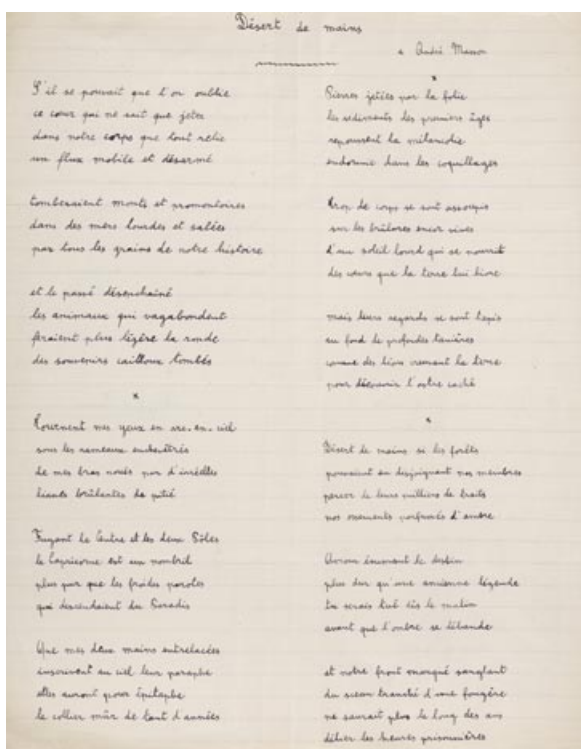 Désert de mains
a André Masson
S'il se pouvait que l'on oublie
ce cœur qui ne sait que jeter
dans notre corps que tout relie
un flux mobile et désarmé
tomberaient monts et promontoires
dans des mers lourdes et salées
par tous les grains de notre histoire
et le passé désenchaîné
les animaux qui vagabondent
feraient plus légère la ronde
des souvenirs cailloux tombés
*
Tournent mes yeux en arc-en-ciel
sous les rameaux enchevêtrés
de mes bras noués par d'irréelles
lianes brûlantes de pitié
Fuyant le Centre et les deux Pôles
le Capricorne est un nombril
plus pur que les froides paroles
qui descendaient du Paradis
Que mes deux mains entrelacées
inscrivent au ciel leur paraphe
elles auront pour épitaphe
le collier mûr de tant d'années
*
Pierres jetées par la folie
les sédiments des premiers âges
repoussent la mélancolie
endormie dans les coquillages
Trop de corps se sont assoupis
sur les brûlures encor vives
d'un soleil lourd qui se nourrit
des cœurs que la terre lui livre
mais leurs regards se sont tapis
au fond de profondes tanières
comme des lions creusant la terre
pour découvrir l'astre caché
*
Désert de mains si les forêts
pouvaient en desjoignant nos membres
percer de leurs milliers de traits
nos ossements parfumés d'ambre
Amour innocent le destin
plus dur qu'une ancienne légende
tu serais tué dès le matin
avant que l'ombre se débande
et notre front marqué sanglant
du sceau tranché d'une fougère
ne saurait plus le long des ans
délier les heures prisonnières